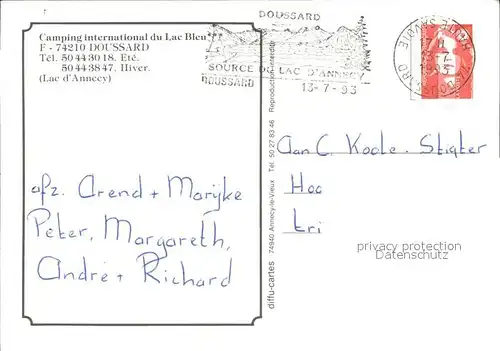 Camping international du Lac Bleu
F - 74210 DOUSSARD
Tél. 50443018. Eté.
50443847. Hiver.
(Lac d'Annecy)
DOUSSARD
SOURCE DU LAC D'ANNECY
DOUSSARD 13-7-93
HAUTE SAVOIE
13-7
1993
74 DOUSSARD
afz. Arend + Marijke
Peter, Margareth,
André + Richard
diffu-cartes 74940 Annecy-le-Vieux Tél. 50 27 83 46 Reproduction interdite
Aan C. Koole. Stigter
Hoo
tri
privacy protection
Datenschutz